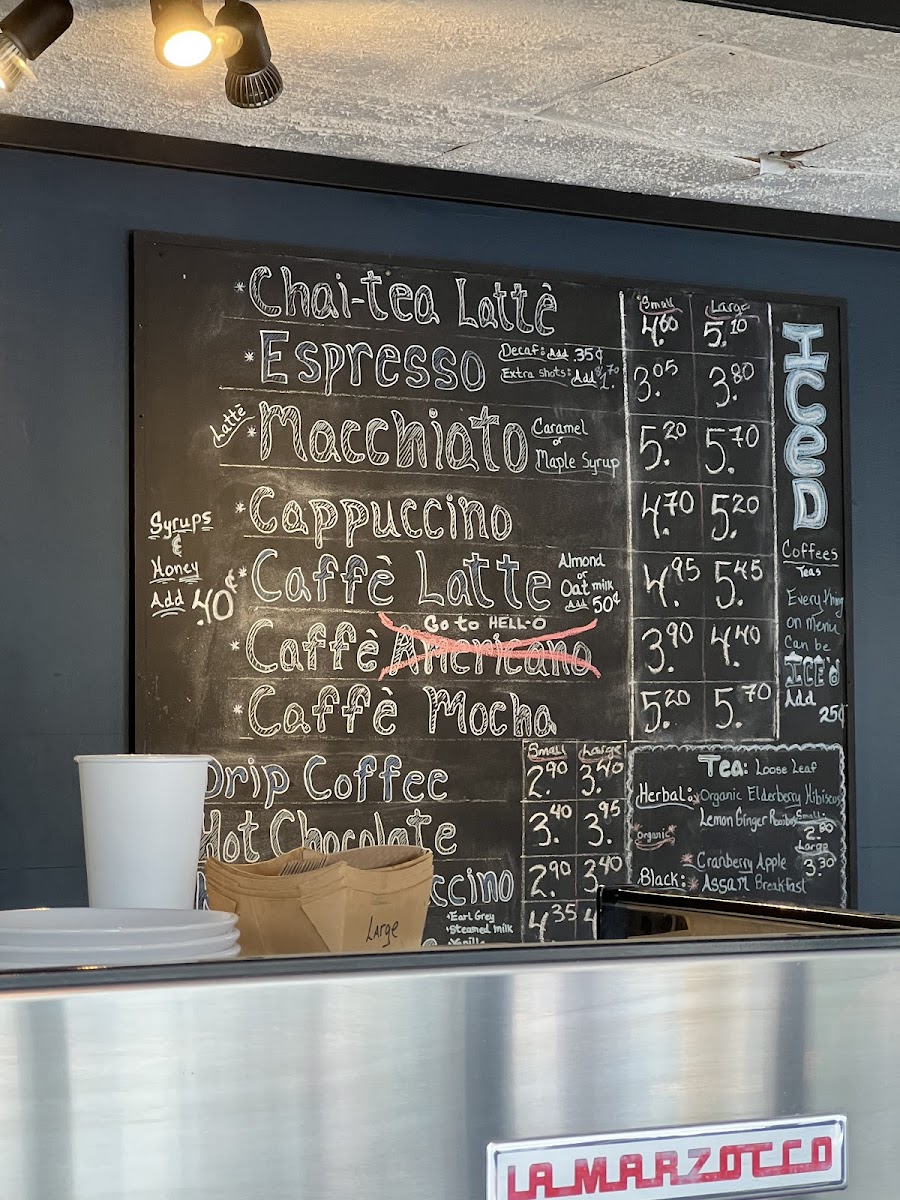 Small Large
* Chai-tea Lattê 4.60 5.10
* Espresso Decaf: Add .35¢ 3.05 3.80
Extra shots: Add $1.70
Lattê * Macchiato Caramel or Maple Syrup 5.20 5.70
* Cappuccino 4.70 5.20
* Caffè Latte Almond or Oat milk Add 50¢ 4.95 5.45
Go to HELL-O
* Caffè Americano 3.90 4.40
* Caffè Mocha 5.20 5.70
Syrups
&
Honey
Add .40¢
ICeD
Coffees
Teas
Everything
on menu
Can be
ICE'd
Add
25¢
Small Large
Drip Coffee 2.90 3.40
Hot Chocolate 3.40 3.95
ccino 2.90 3.40
*Earl Grey 4.35 4.
*Steamed milk
*Vanilla
Tea: Loose Leaf
Herbal: * Organic Elderberry Hibiscus
Lemon Ginger Rooibos
*Organic*
* Cranberry Apple
Black: * Assam Breakfast
Small:
2.80
Large
3.30
Large
LA MARZOCCO